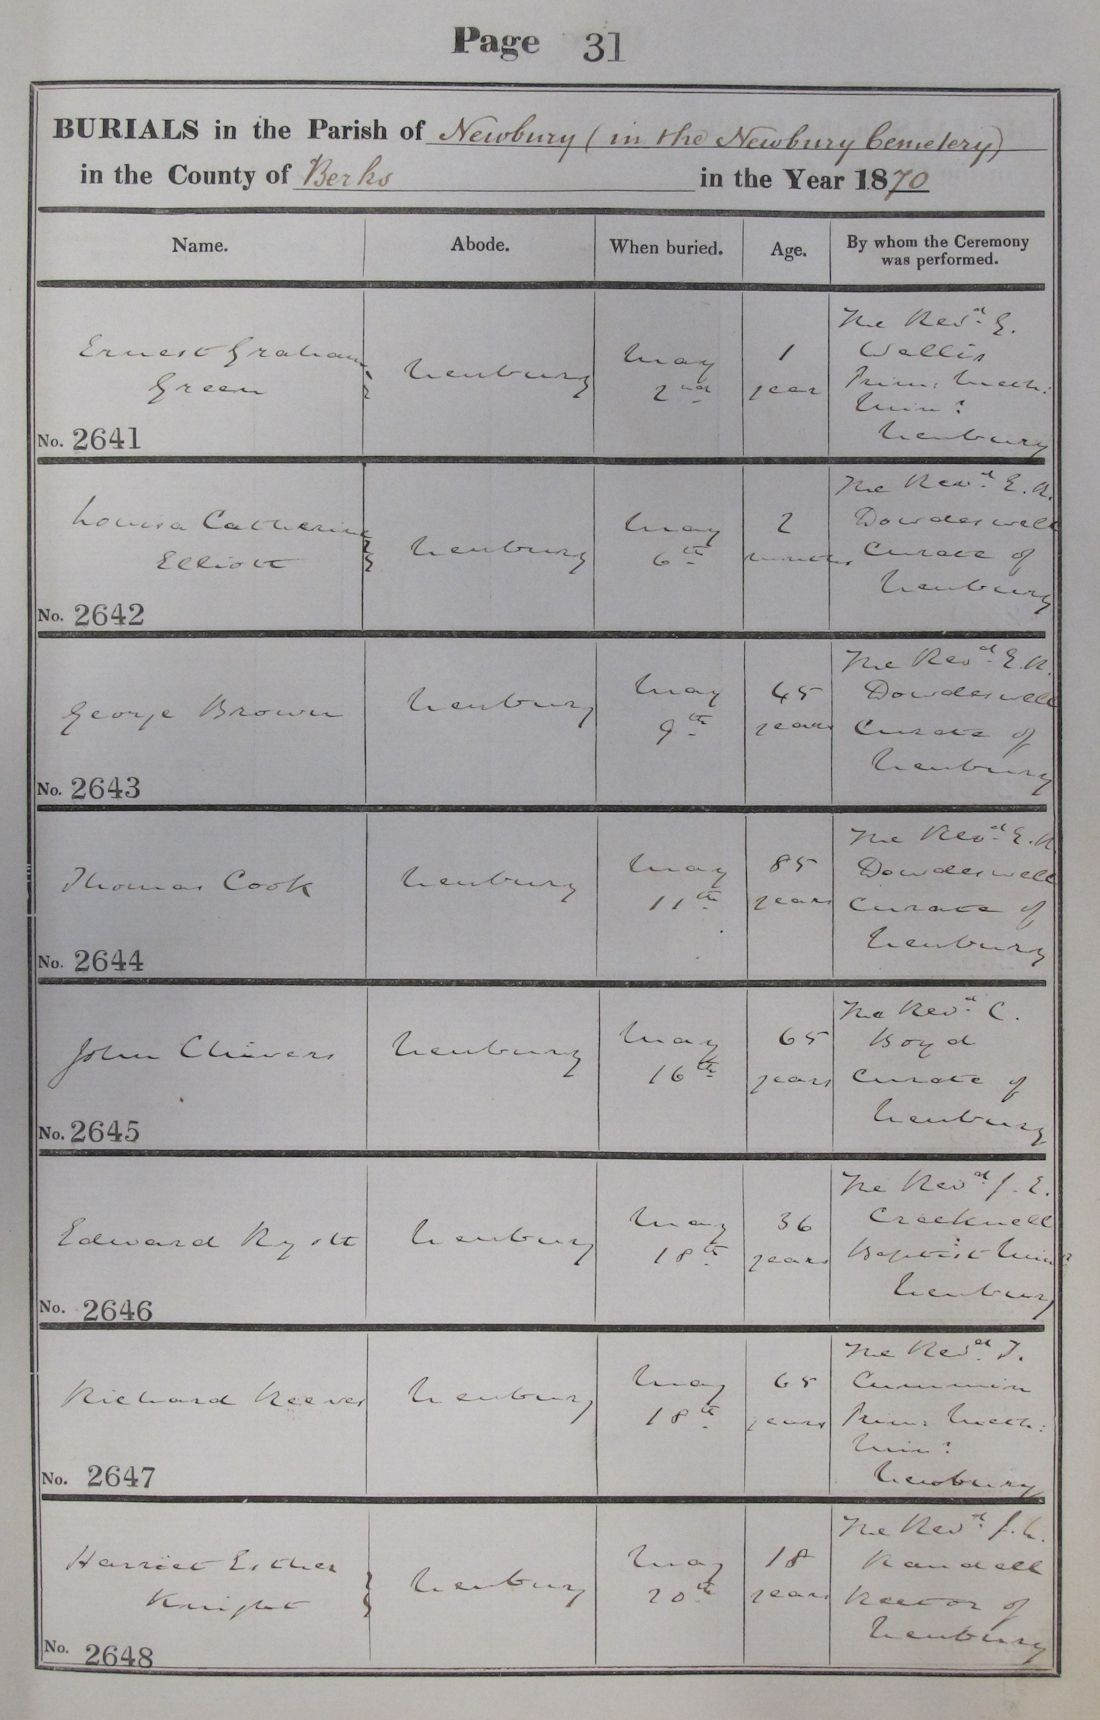 Page 31
BURIALS in the Parish of Newbury (in the Newbury Cemetery)
in the County of Berks in the Year 1870
Name. Abode. When buried. Age. By whom the Ceremony was performed.
Ernest Graham
Green
Newbury
May
2nd
1
year
The Revd. E.
Wallis
Prim: Meth:
Min:
Newbury
No. 2641
Louisa Catherine
Elliott
Newbury
May
6th
2
months
The Revd. E. R.
Dowdeswell
Curate of
Newbury
No. 2642
George Brown
Newbury
May
9th
45
years
The Revd. E. R.
Dowdeswell
Curate of
Newbury
No. 2643
Thomas Cook
Newbury
May
11th
85
years
The Revd. E. R.
Dowdeswell
Curate of
Newbury
No. 2644
John Chivers
Newbury
May
16th
65
years
The Revd. C.
Boyd
Curate of
Newbury
No. 2645
Edward
Newbury
May
18th
36
years
The Revd. J. E.
Cracknell
Baptist Min:
Newbury
No. 2646
Richard Reeves
Newbury
May
18th
65
years
The Revd. T.
Cummin
Prim: Meth:
Min:
Newbury
No. 2647
Harriet Esther
Knight
Newbury
May
20th
18
years
The Revd. J. L.
Randell
Rector of
Newbury
No. 2648